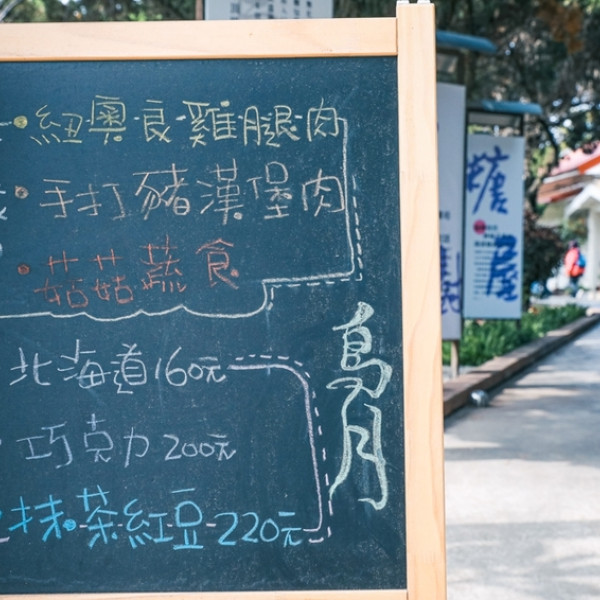 紐奧良雞腿肉
手打豬漢堡肉
菇菇蔬食
北海道160元
巧克力 200元
抹茶紅豆 220元
島月
糖
屋